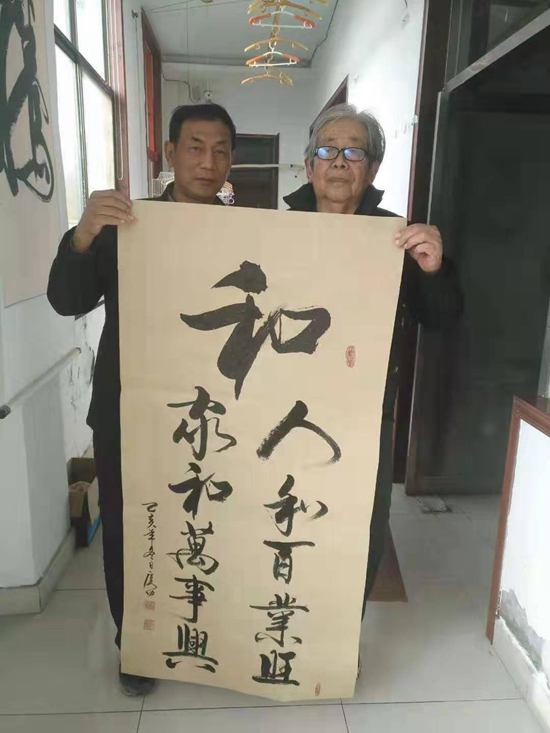 和
人和百業旺
家和萬事興
己亥年冬月